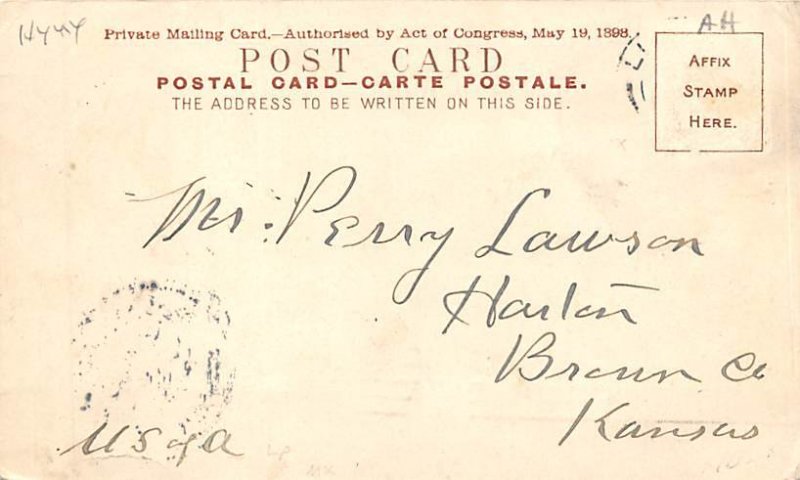 Private Mailing Card.—Authorised by Act of Congress, May 19, 1898.
AH
POST CARD
POSTAL CARD—CARTE POSTALE.
THE ADDRESS TO BE WRITTEN ON THIS SIDE.
AFFIX
STAMP
HERE.
Mr. Perry Lawson
Brown Co
Kansas
U S of A